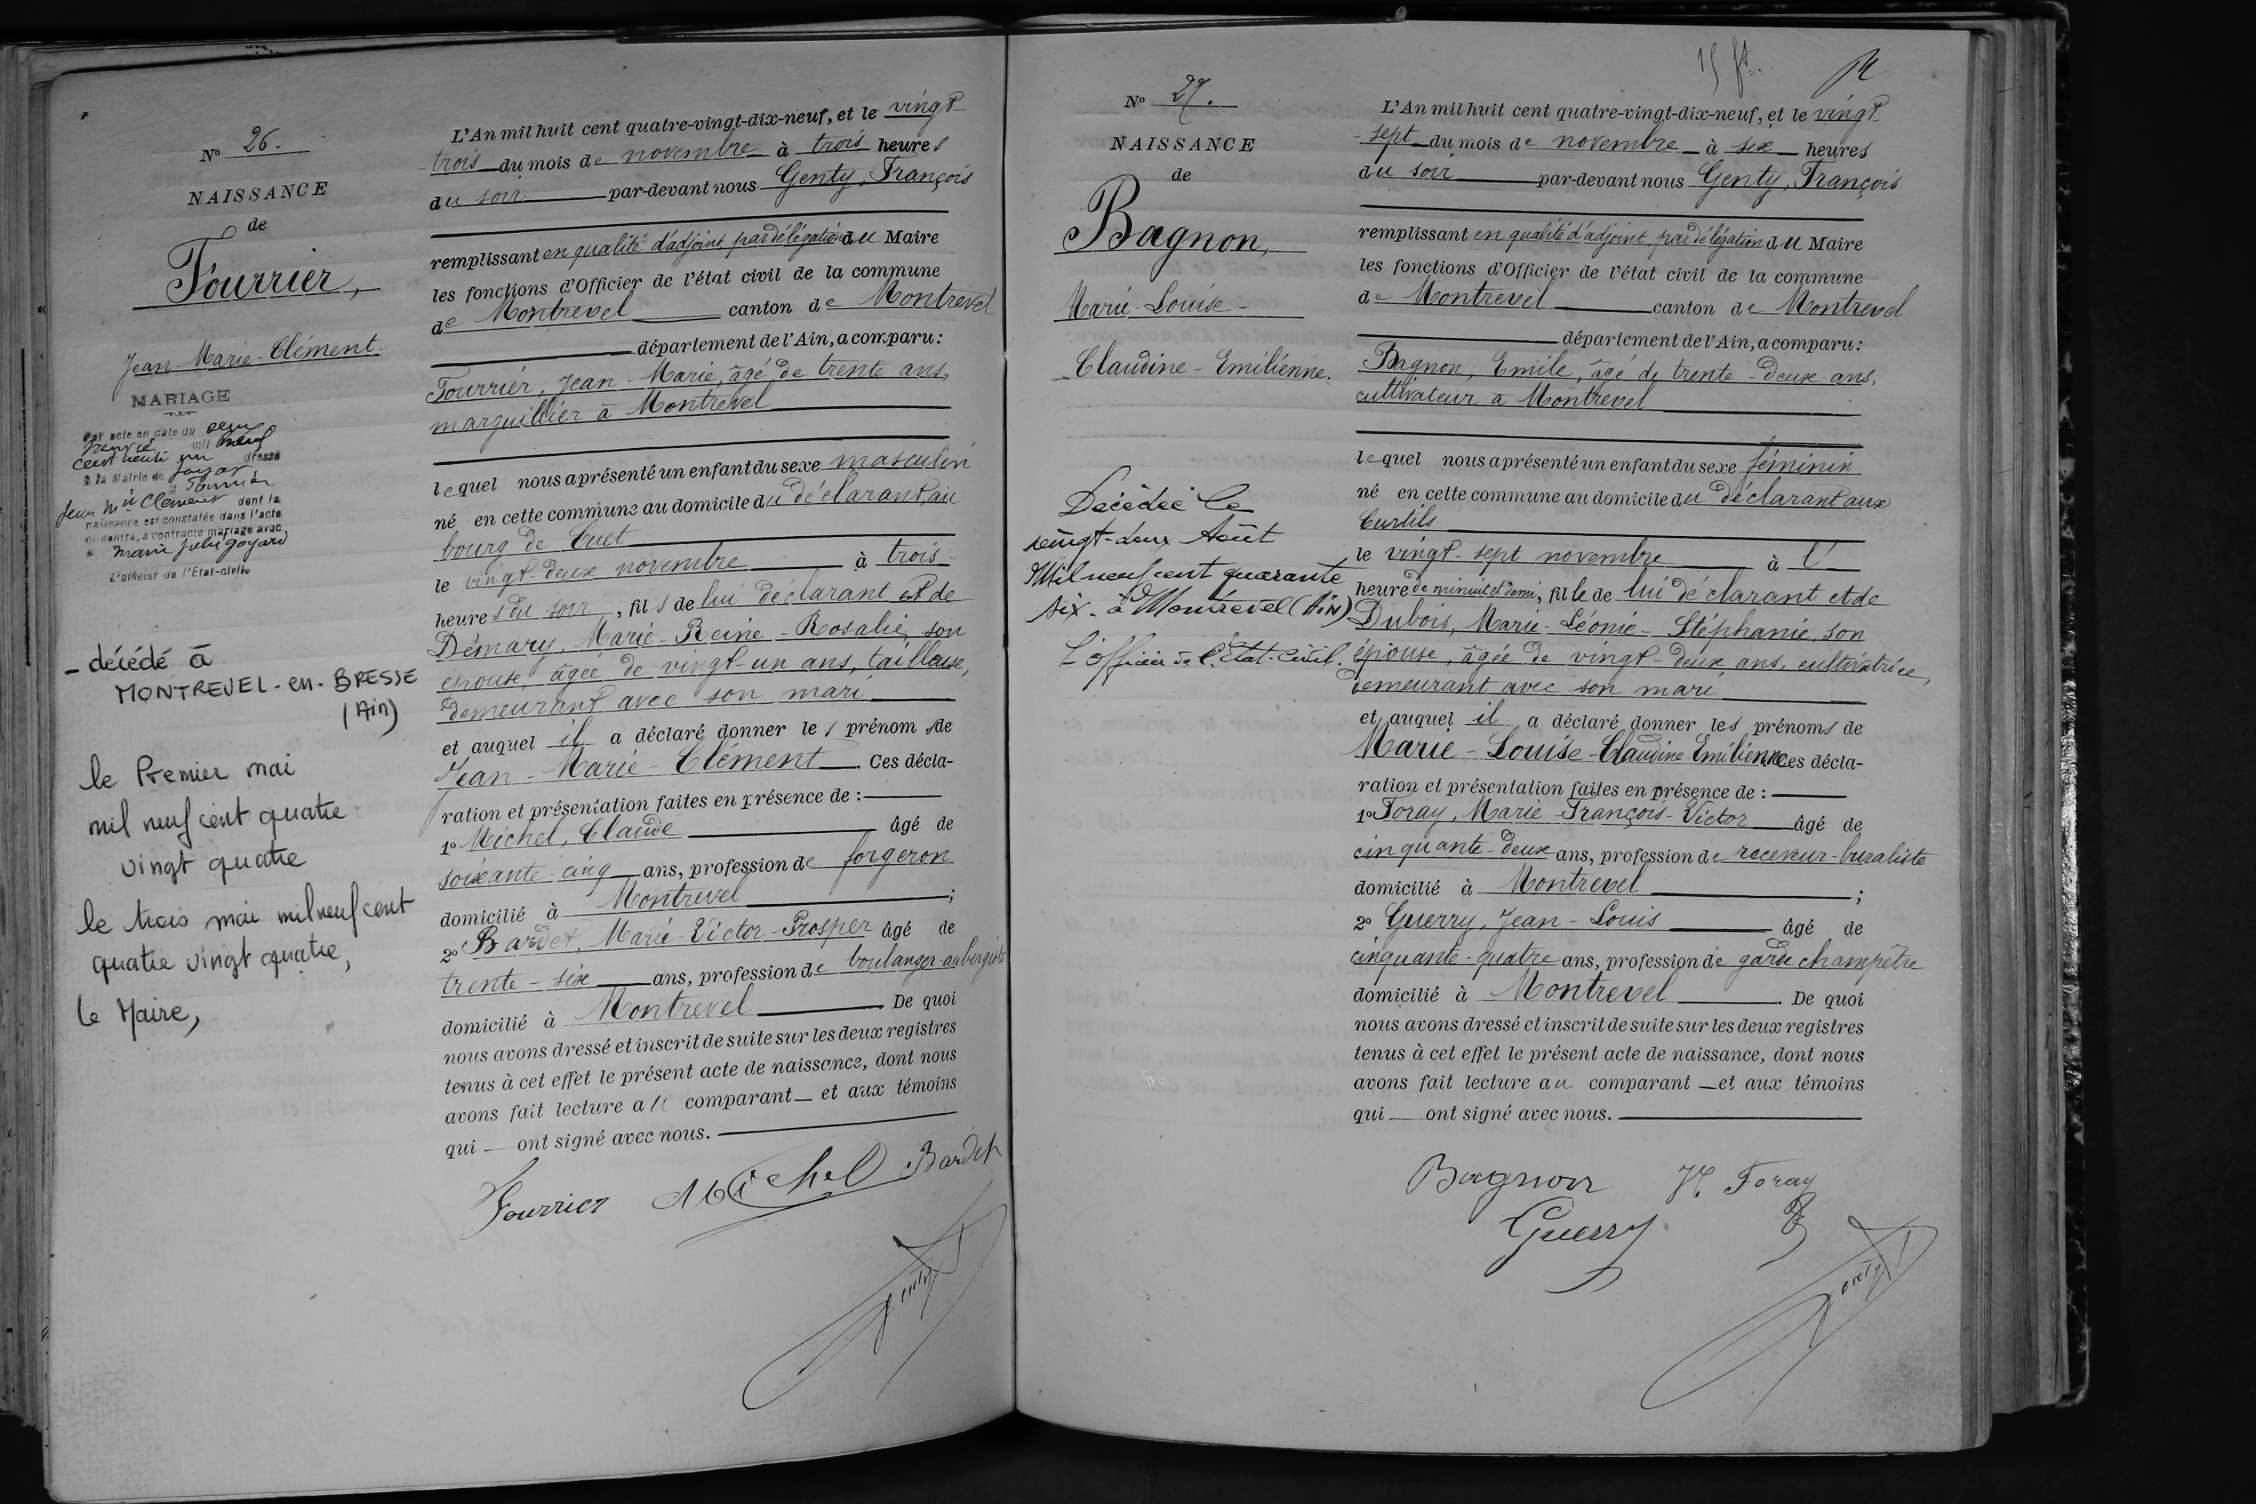 N° 26.
NAISSANCE
de
Fourrier,
Jean-Marie-Clément.
MARIAGE
Par acte en date du deux
mil neuf
cent vingt un dressé
à la Mairie de Jayat
Fourrier
Jean Mie Clément dont la
naissance est constatée dans l'acte
ci-contre, a contracté mariage avec
Marie Julie Goyard
L'officier de l'Etat-civil.
- décédé à
MONTREVEL-en-BRESSE
(Ain)
le Premier mai
mil neuf cent quatre
vingt quatre
le trois mai mil neuf cent
quatre vingt quatre,
le Maire,
L'An mil huit cent quatre-vingt-dix-neuf, et le vingt-
trois du mois de novembre à trois heures
du soir par-devant nous Genty, François
remplissant en qualité d'adjoint par délégation du Maire
les fonctions d'Officier de l'état civil de la commune
de Montrevel canton de Montrevel
département de l'Ain, a comparu:
Fourrier, Jean-Marie, âgé de trente ans,
marguillier à Montrevel
lequel nous a présenté un enfant du sexe masculin
né en cette commune au domicile du déclarant, au
bourg de Cuet
le vingt-deux novembre à trois
heures du soir, fils de lui déclarant et de
Démary, Marie-Reine-Rosalie, son
épouse, âgée de vingt-un ans, tailleuse,
demeurant avec son mari
et auquel il a déclaré donner les prénoms de
Jean-Marie-Clément. Ces décla-
ration et présentation faites en présence de :
1° Michel, Claude âgé de
soixante-cinq ans, profession de forgeron
domicilié à Montrevel ;
2° Bardet, Marie-Victor-Prosper âgé de
trente-six ans, profession de boulanger-aubergiste
domicilié à Montrevel. De quoi
nous avons dressé et inscrit de suite sur les deux registres
tenus à cet effet le présent acte de naissance, dont nous
avons fait lecture au comparant et aux témoins
qui ont signé avec nous.
Fourrier Michel Bardet
Genty
N° 27.
NAISSANCE
de
Bagnon,
Marie-Louise-
Claudine-Emilienne.
Décédée le
vingt-deux Août
Mil neuf cent quarante
six. à Montrevel (Ain)
L'officier de l'Etat-Civil.
L'An mil huit cent quatre-vingt-dix-neuf, et le vingt-
-sept du mois de novembre à six heures
du soir par-devant nous Genty, François
remplissant en qualité d'adjoint, par délégation du Maire
les fonctions d'Officier de l'état civil de la commune
de Montrevel canton de Montrevel
département de l'Ain, a comparu:
Bagnon, Emile, âgé de trente-deux ans,
cultivateur à Montrevel
lequel nous a présenté un enfant du sexe féminin
né en cette commune au domicile du déclarant aux
Curtils
le vingt-sept novembre à l'
heure de minuit et demi, fille de lui déclarant et de
Dubois, Marie-Léonie-Stéphanie, son
épouse, âgée de vingt-deux ans, cultivatrice,
demeurant avec son mari
et auquel il a déclaré donner les prénoms de
Marie-Louise-Claudine-Emilienne. Ces décla-
ration et présentation faites en présence de :
1° Foray, Marie-François-Victor âgé de
cinquante-deux ans, profession de receveur-buraliste
domicilié à Montrevel ;
2° Guerry, Jean-Louis âgé de
cinquante-quatre ans, profession de garde champêtre
domicilié à Montrevel. De quoi
nous avons dressé et inscrit de suite sur les deux registres
tenus à cet effet le présent acte de naissance, dont nous
avons fait lecture au comparant et aux témoins
qui ont signé avec nous.
Bagnon Foray
Guerry
Genty